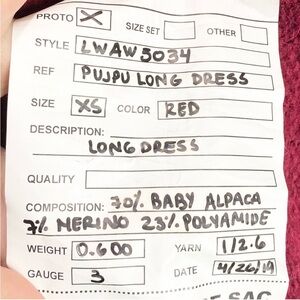 PROTO X SIZE SET OTHER
STYLE LWAW5034
REF PUJPU LONG DRESS
SIZE XS COLOR RED
DESCRIPTION:
LONG DRESS
QUALITY
COMPOSITION: 70% BABY ALPACA
7% MERINO 23% POLYAMIDE
WEIGHT 0.600 YARN 1/2.6
GAUGE 3 DATE 4/26/19